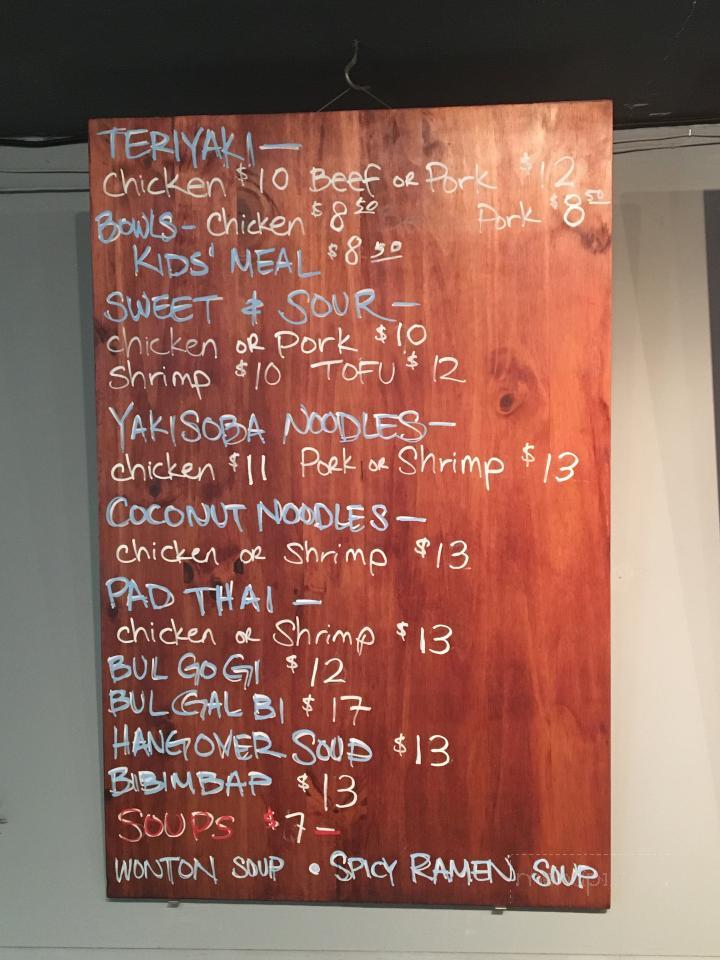 TERIYAKI —
Chicken $10 Beef or Pork $12
BOWLS - Chicken $8.50 Pork $8.50
KIDS' MEAL $8.50
SWEET & SOUR —
chicken or Pork $10
Shrimp $10 TOFU $12
YAKISOBA NOODLES —
chicken $11 Pork or Shrimp $13
COCONUT NOODLES —
chicken or Shrimp $13
PAD THAI —
chicken or Shrimp $13
BUL GO GI $12
BUL GAL BI $17
HANGOVER SOUP $13
BIBIMBAP $13
SOUPS $7 —
WONTON SOUP • SPICY RAMEN SOUP